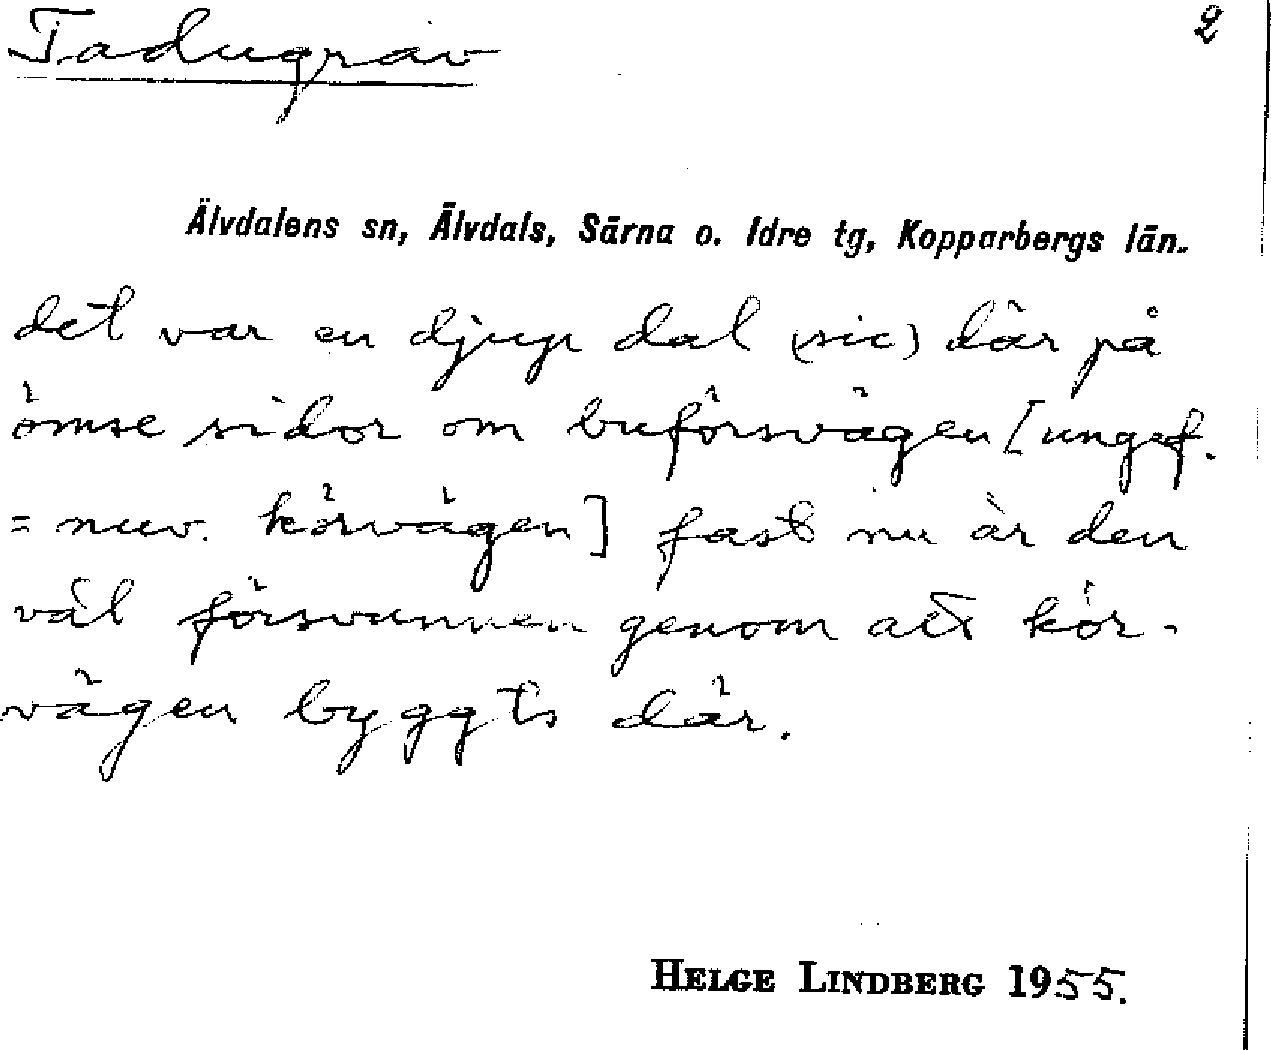 Tadugrav 2
Älvdalens sn, Älvdals, Särna o. Idre tg, Kopparbergs län.
det var en djup dal (sic) där på
ömse sidor om buförsvägen [ungef.
= nuv. körvägen] fast nu är den
väl försvunnen genom att kör-
vägen byggts där.
HELGE LINDBERG 1955.